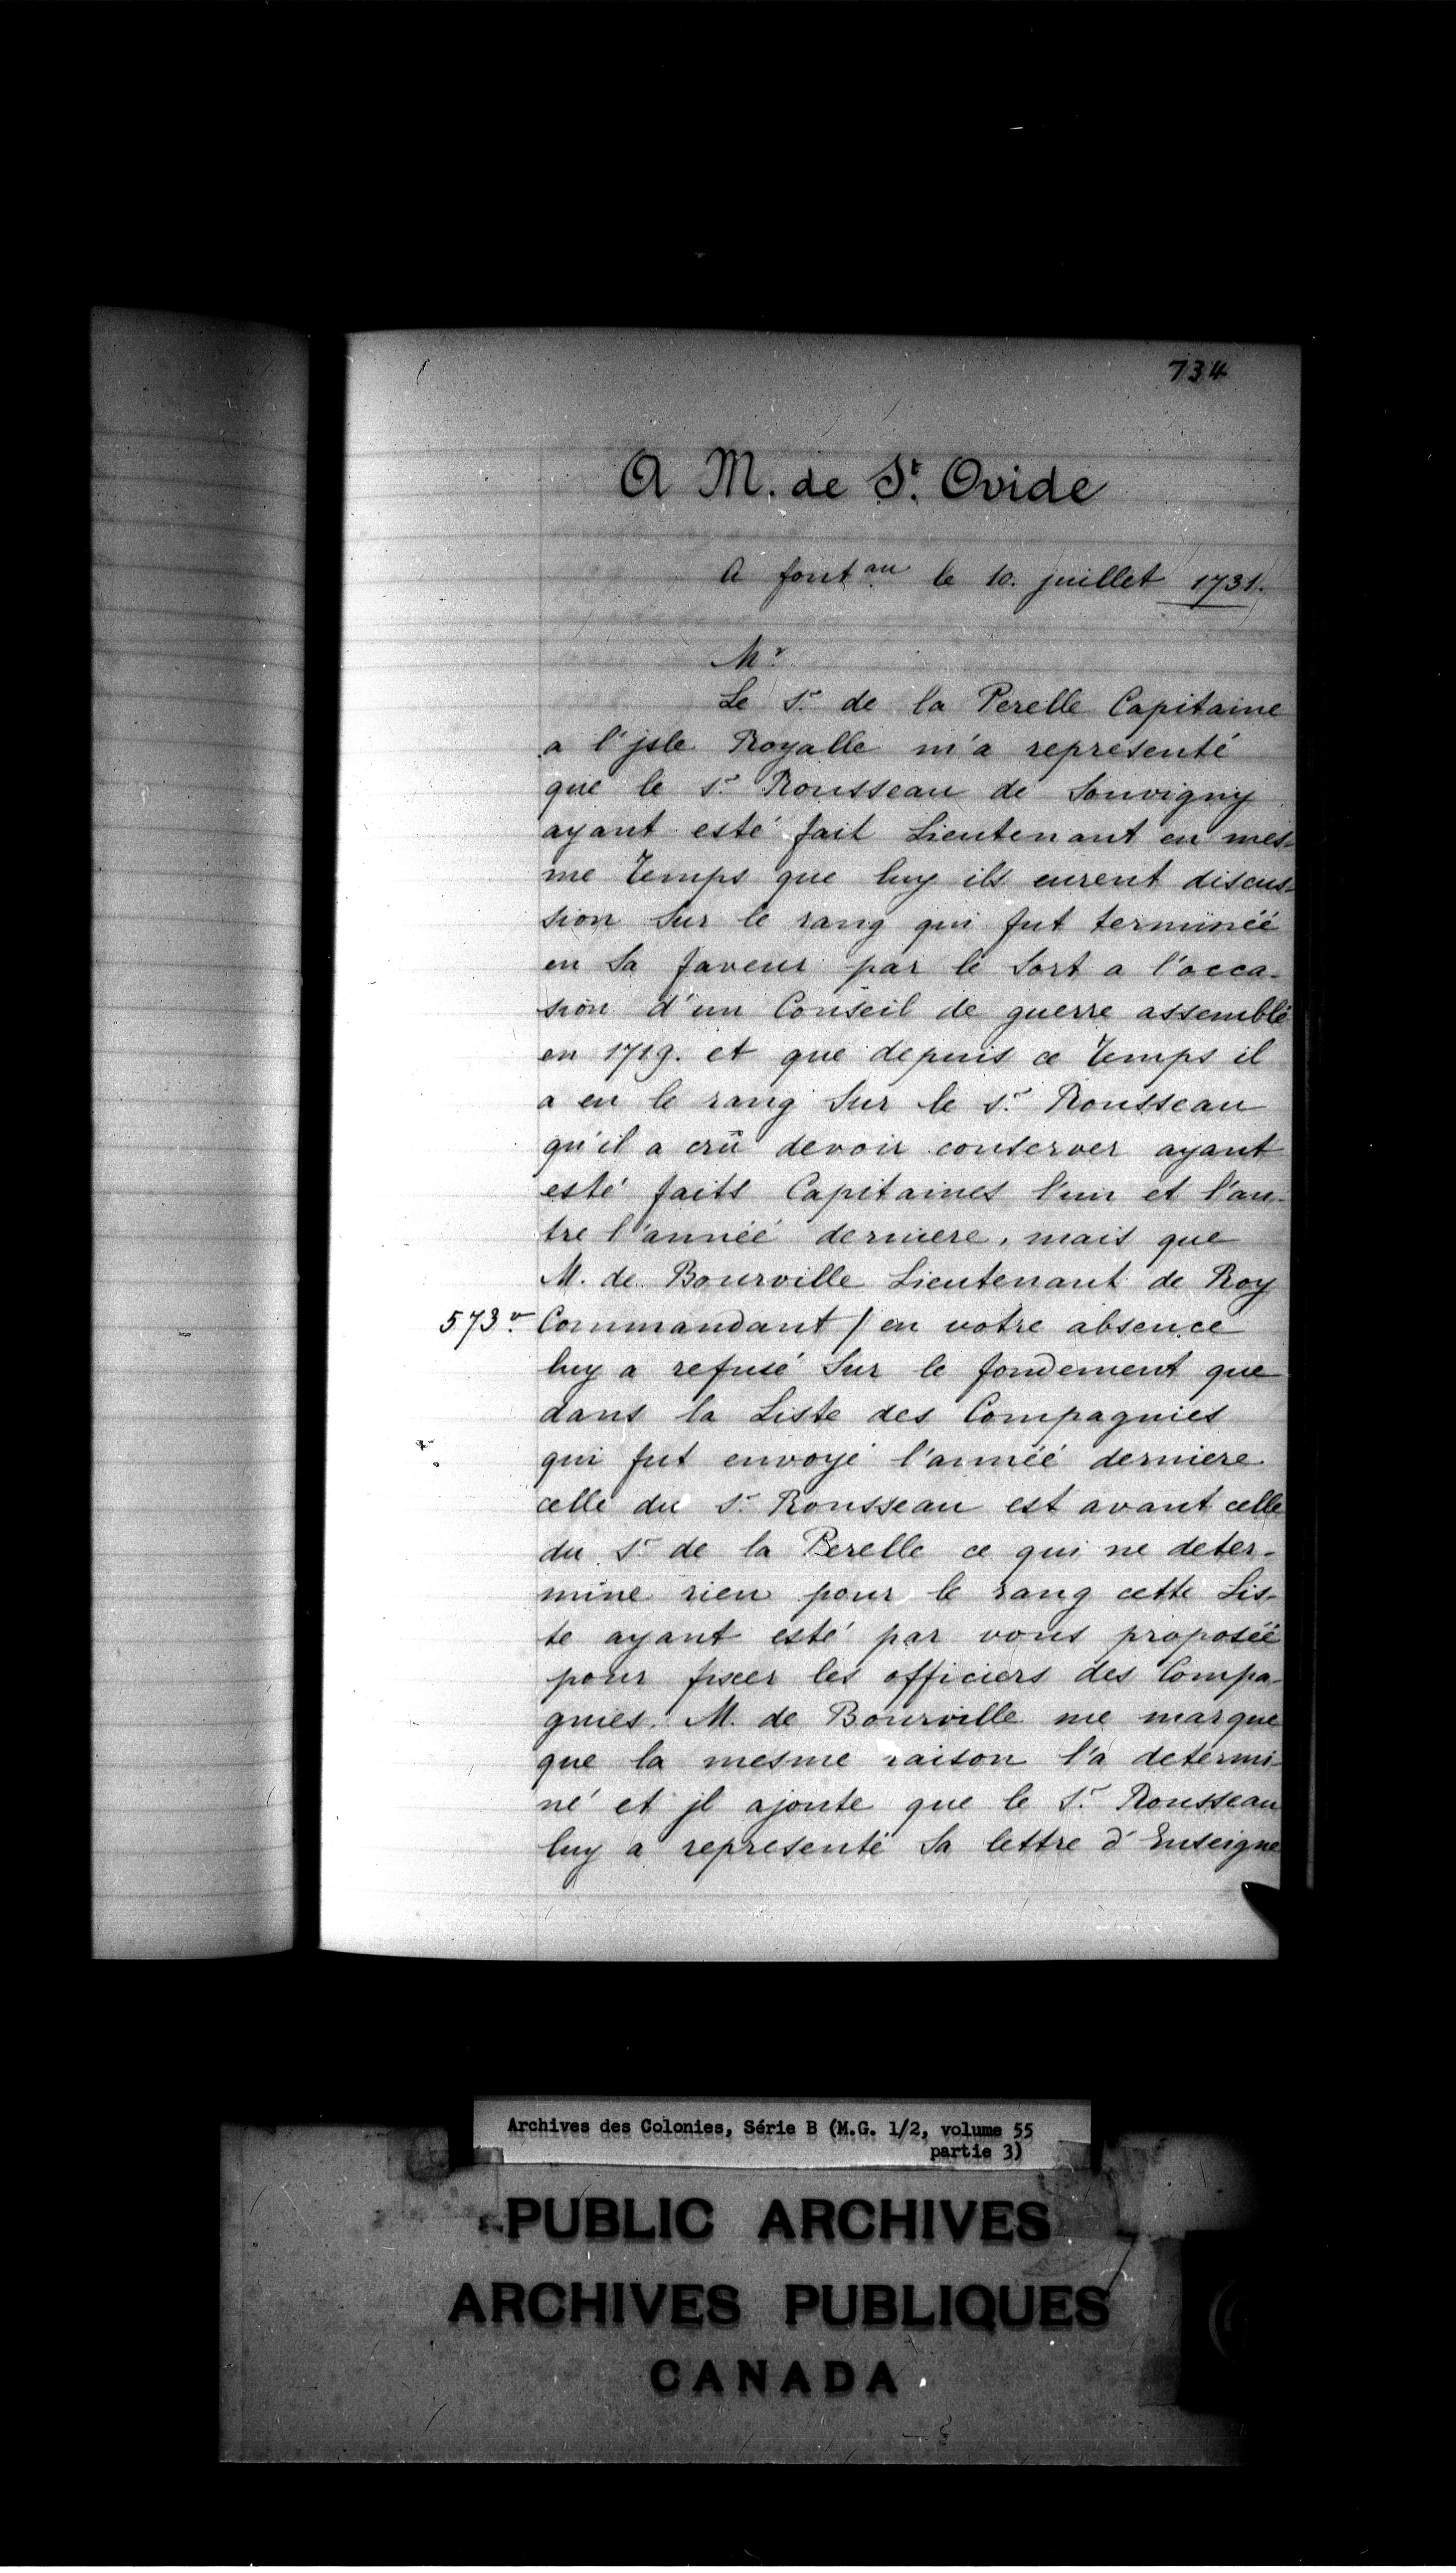 734
A M. de St. Ovide
A fontau le 10. juillet 1731.
Mr.
Le Sr. de la Perelle Capitaine
a l'jsle Royalle m'a representé
que le Sr. Rousseau de Souvigny
ayant esté fait Lieutenant en mes-
me Temps que luy ils eurent discus-
sion sur le rang qui fut terminéé
en sa faveur par le sort a l'occa-
sion d'un Conseil de guerre assemblé
en 1719. et que depuis ce Temps il
a eu le rang sur le Sr. Rousseau
qu'il a crû devoir conserver ayant
esté faits Capitaines l'un et l'au-
tre l'annéé derniere, mais que
M. de Bourville Lieutenant de Roy
573v. Commandant / en votre absence
luy a refusé sur le fondement que
dans la Liste des Compagnies
qui fut envoyé l'annéé derniere
celle du Sr. Rousseau est avant celle
du Sr. de la Perelle ce qui ne deter-
mine rien pour le rang cette Lis-
te ayant esté par vous proposéé
pour fixer les officiers des Compa-
gnies. M. de Bourville me marque
que la mesme raison l'a determi-
né et jl ajoute que le Sr. Rousseau
luy a representé sa lettre d'Enseigne
Archives des Colonies, Série B (M.G. 1/2, volume 55
partie 3)
PUBLIC ARCHIVES
ARCHIVES PUBLIQUES
CANADA